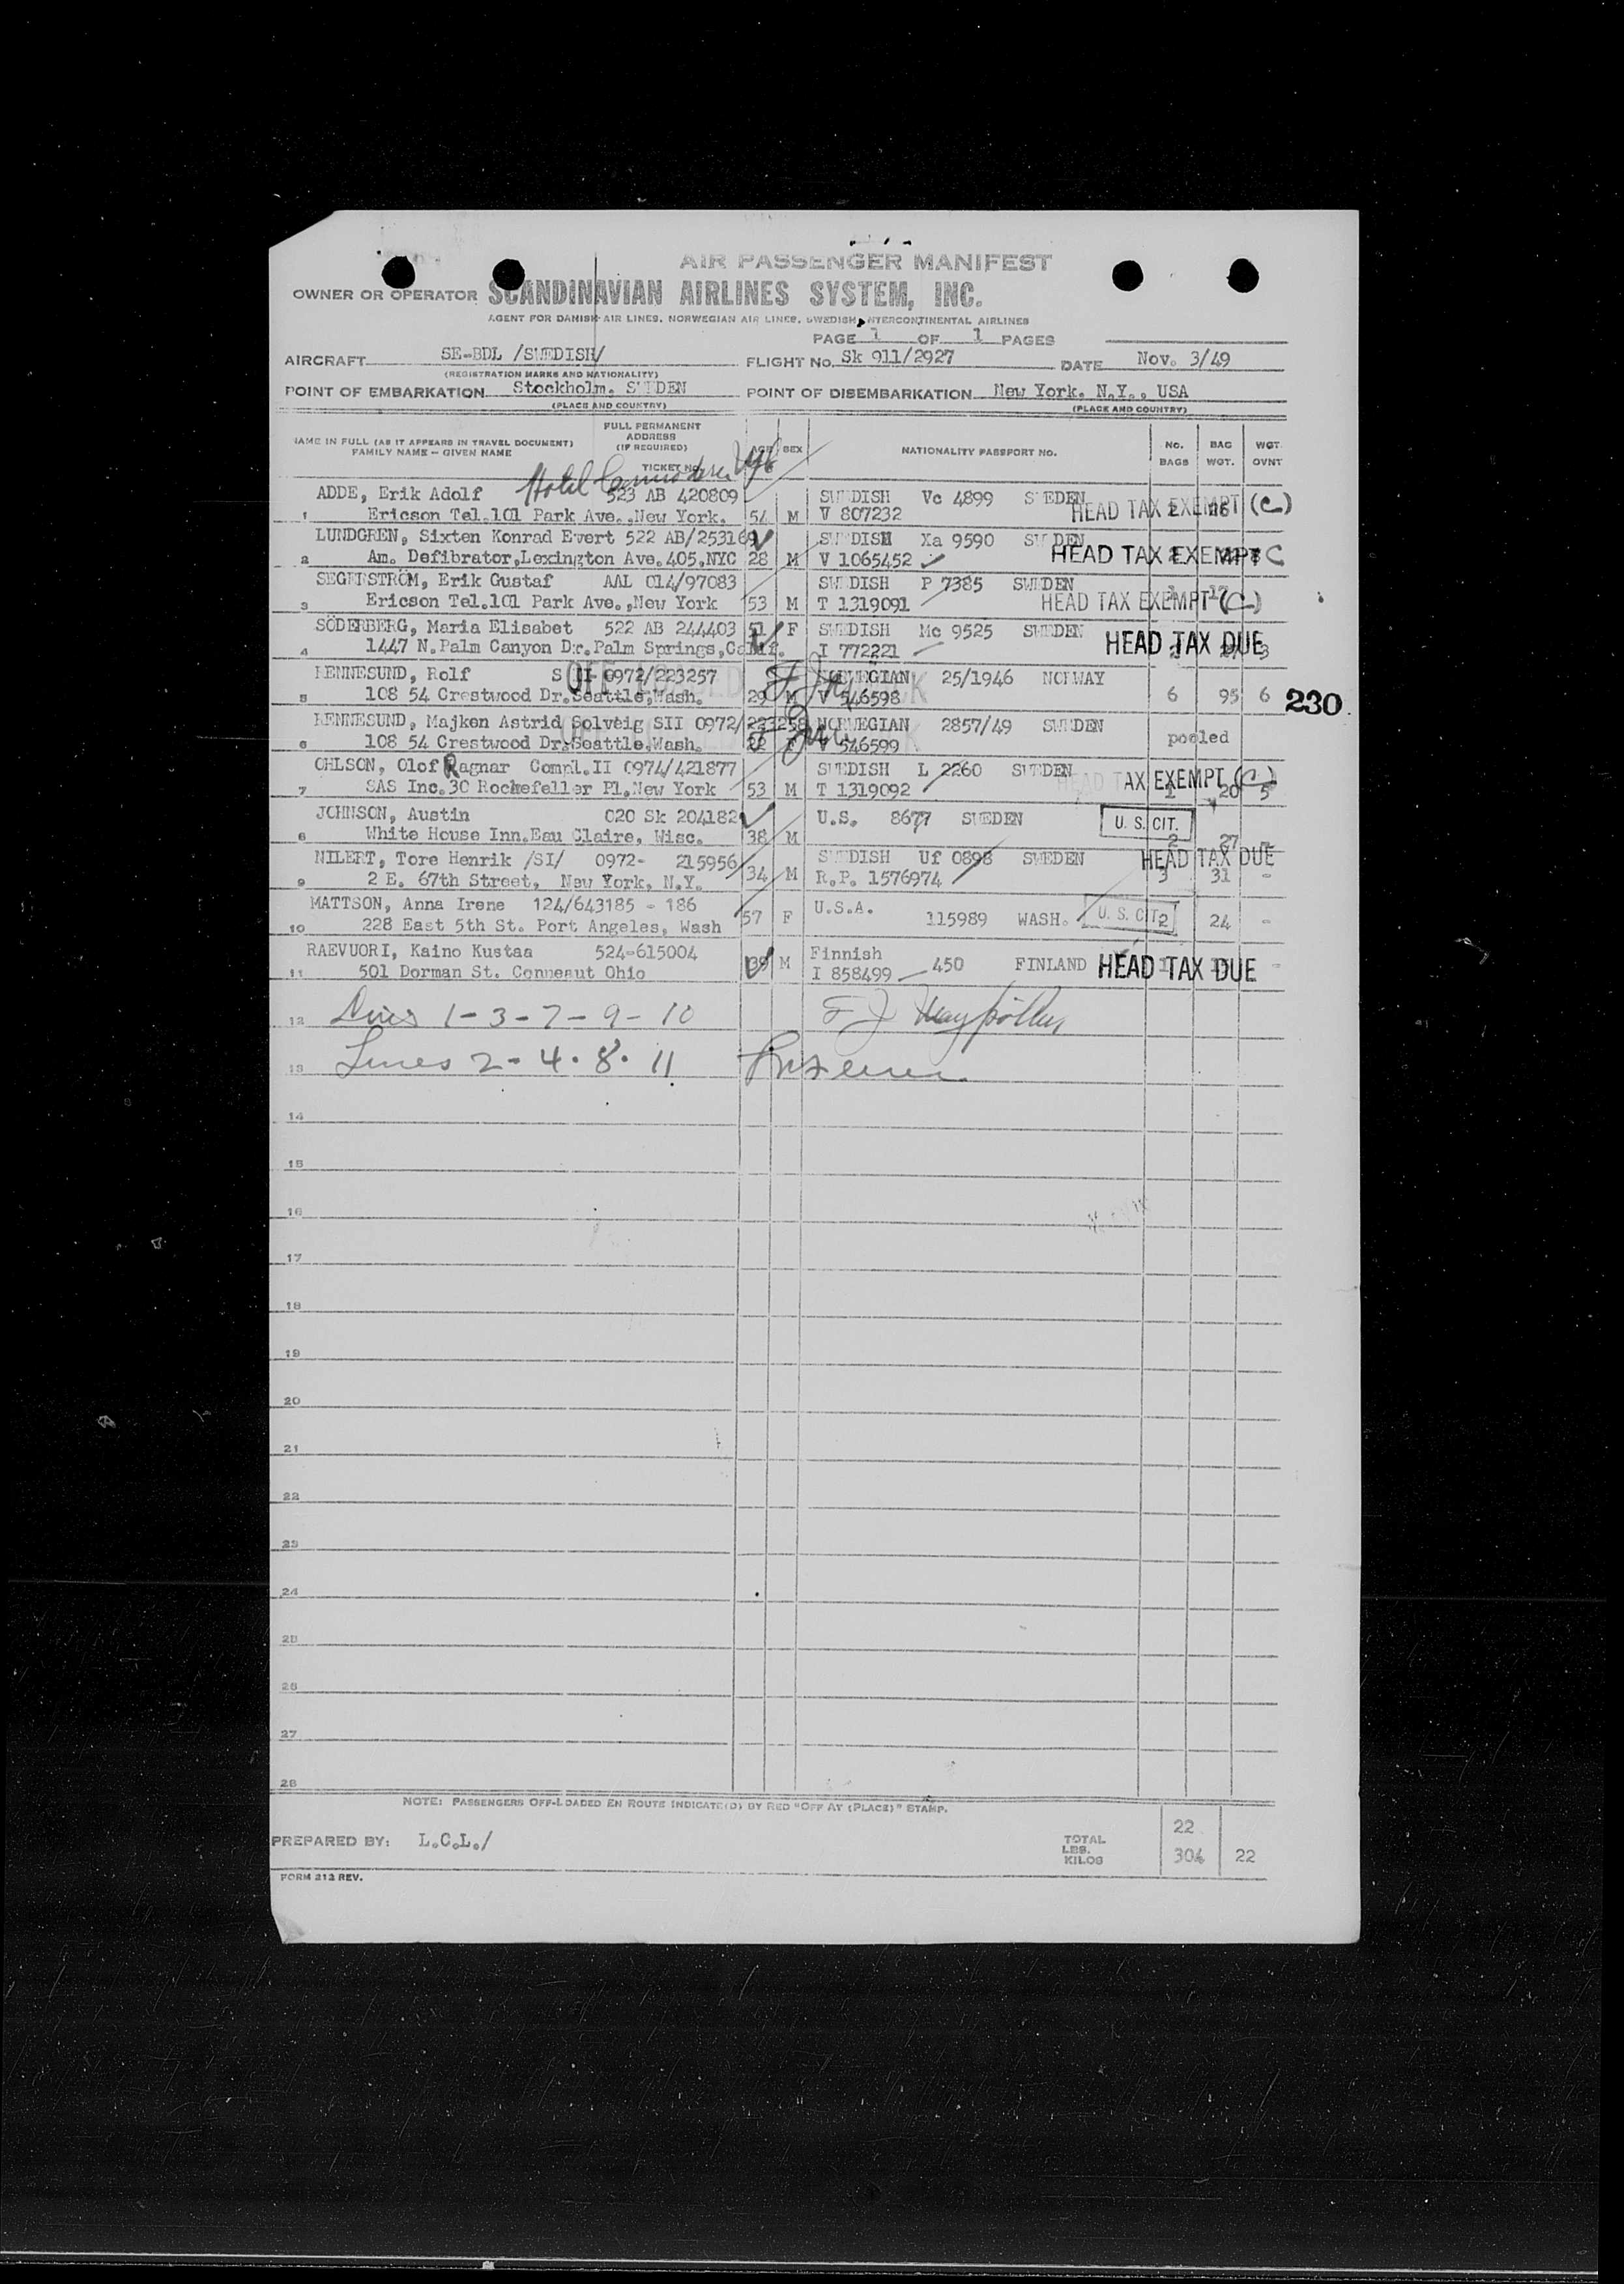 AIR PASSENGER MANIFEST
OWNER OR OPERATOR SCANDINAVIAN AIRLINES SYSTEM, INC.
AGENT FOR DANISH AIR LINES, NORWEGIAN AIR LINES, SWEDISH INTERCONTINENTAL AIRLINES
PAGE 1 OF 1 PAGES
AIRCRAFT SE-BDL /SWEDISH/ FLIGHT NO. Sk 911/2927 DATE Nov. 3/49
(REGISTRATION MARKS AND NATIONALITY)
POINT OF EMBARKATION Stockholm, SWEDEN POINT OF DISEMBARKATION New York, N.Y., USA
(PLACE AND COUNTRY) (PLACE AND COUNTRY)
NAME IN FULL (AS IT APPEARS IN TRAVEL DOCUMENT) FAMILY NAME - GIVEN NAME FULL PERMANENT ADDRESS (IF REQUIRED) TICKET NO. AGE SEX NATIONALITY PASSPORT NO. NO. BAGS BAG WGT. WGT. OVNT
Hotel Commodore NYC
ADDE, Erik Adolf 523 AB 420809 SWEDISH Vc 4899 SWEDEN HEAD TAX EXEMPT (C)
1 Ericson Tel.101 Park Ave.,New York. 54 M V 807232
LUNDGREN, Sixten Konrad Evert 522 AB/253169 SWEDISH Xa 9590 SWEDEN
2 Am. Defibrator,Lexington Ave.405,NYC 28 M V 1065452 HEAD TAX EXEMPT C
SEGERSTRÖM, Erik Gustaf AAL 014/97083 SWEDISH P 7385 SWEDEN
3 Ericson Tel.101 Park Ave.,New York 53 M T 1319091 HEAD TAX EXEMPT (C)
SÖDERBERG, Maria Elisabet 522 AB 244403 51 F SWEDISH Mc 9525 SWEDEN
4 1447 N.Palm Canyon Dr.Palm Springs,Calif. I 772221 HEAD TAX DUE 3
RENNESUND, Rolf S II 0972/223257 NORWEGIAN 25/1946 NORWAY
5 108 54 Crestwood Dr.Seattle,Wash. 29 M V 546598 6 95 6 230
RENNESUND, Majken Astrid Solveig SII 0972/223258 NORWEGIAN 2857/49 SWEDEN
6 108 54 Crestwood Dr.Seattle,Wash. 22 F V 546599 pooled
OHLSON, Olof Ragnar Compl.II 0974/421877 SWEDISH L 2260 SWEDEN HEAD TAX EXEMPT (C)
7 SAS Inc.30 Rockefeller Pl.New York 53 M T 1319092 1 20 5
JOHNSON, Austin 020 Sk 204182 U.S. 8677 SWEDEN U. S. CIT.
8 White House Inn.Eau Claire, Wisc. 38 M 2 27 -
NILERT, Tore Henrik /SI/ 0972- 215956 SWEDISH Uf 0898 SWEDEN HEAD TAX DUE
9 2 E. 67th Street, New York, N.Y. 34 M R.P. 1576974 3 31 -
MATTSON, Anna Irene 124/643185 - 186 U.S.A. U. S. CIT.
10 228 East 5th St. Port Angeles, Wash 57 F 115989 WASH. 2 24 -
RAEVUORI, Kaino Kustaa 524-615004 Finnish
11 501 Dorman St. Conneaut Ohio 39 M I 858499 450 FINLAND HEAD TAX DUE -
12 Lines 1-3-7-9-10
13 Lines 2-4-8-11
14
15
16
17
18
19
20
21
22
23
24
25
26
27
28
NOTE: PASSENGERS OFF-LOADED EN ROUTE INDICATE(D) BY RED "OFF AT (PLACE)" STAMP.
PREPARED BY: L.C.L./ TOTAL LBS. KILOS 22 304 22
FORM 212 REV.